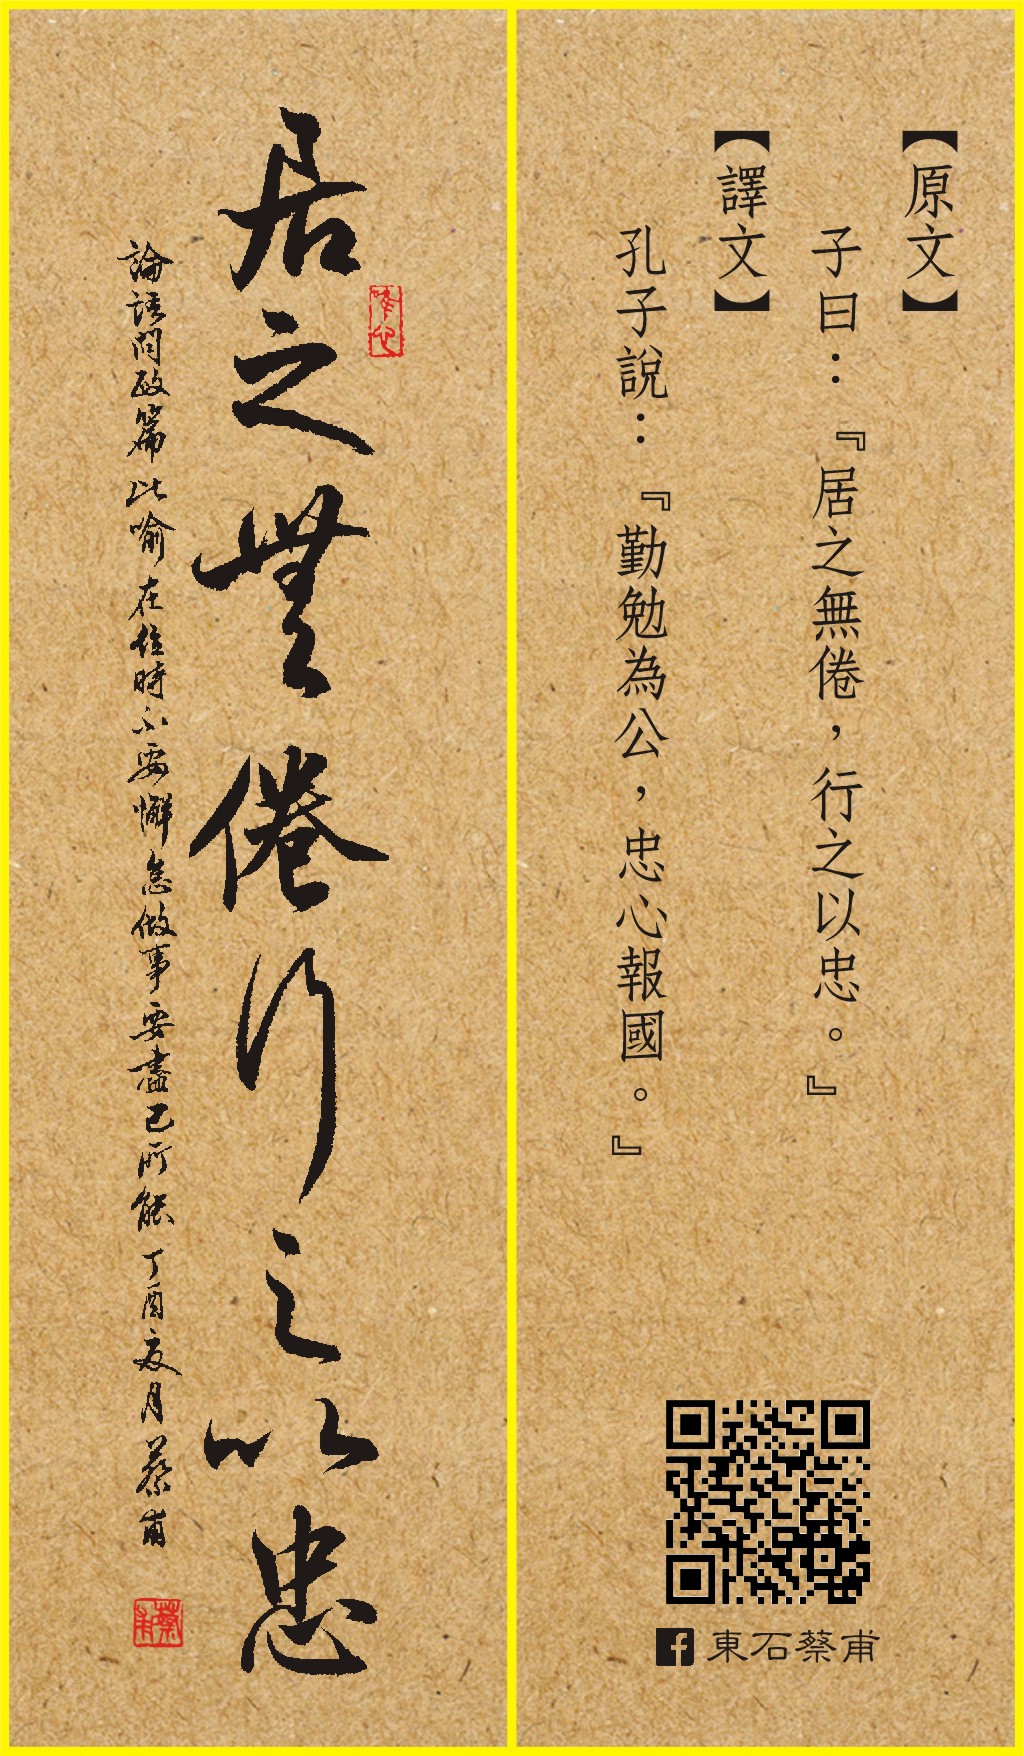 居之無倦行之以忠
論語問政篇此喻在位時不要懈怠做事要盡己所能丁酉夏月蔡甫
蔡甫
【原文】
子曰：『居之無倦，行之以忠。』
【譯文】
孔子說：『勤勉為公，忠心報國。』
東石蔡甫